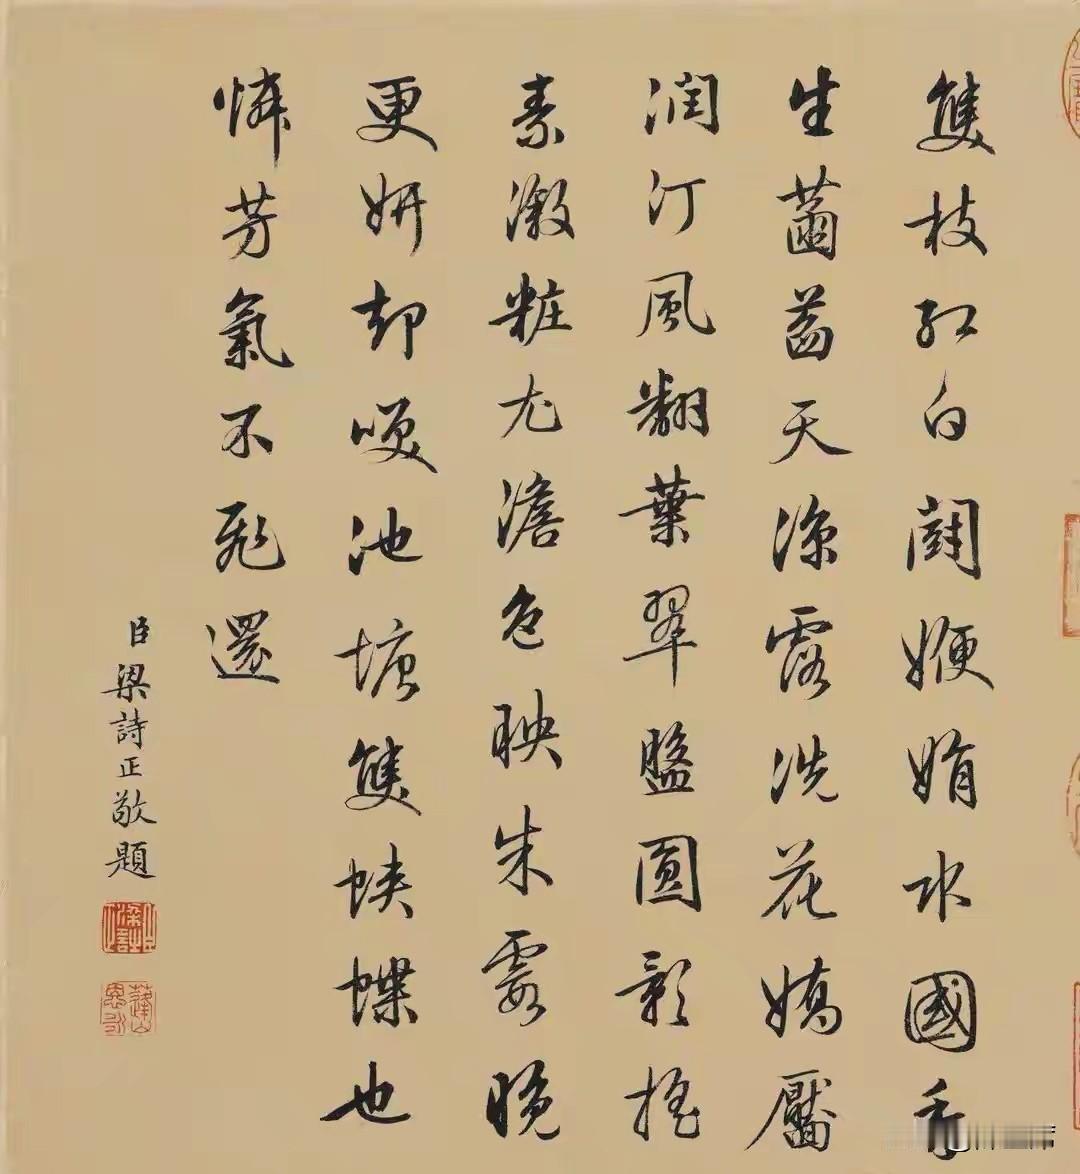 雙枝紅白鬪㛹娟水國香
生菡萏天涼露洗花嬌靨
潤汀風翻葉翠盤圓影搖
素瀲粧尤澹色映朱霞晚
更妍却咲池塘雙蛺蝶也
憐芳氣不飛還
臣梁詩正敬題